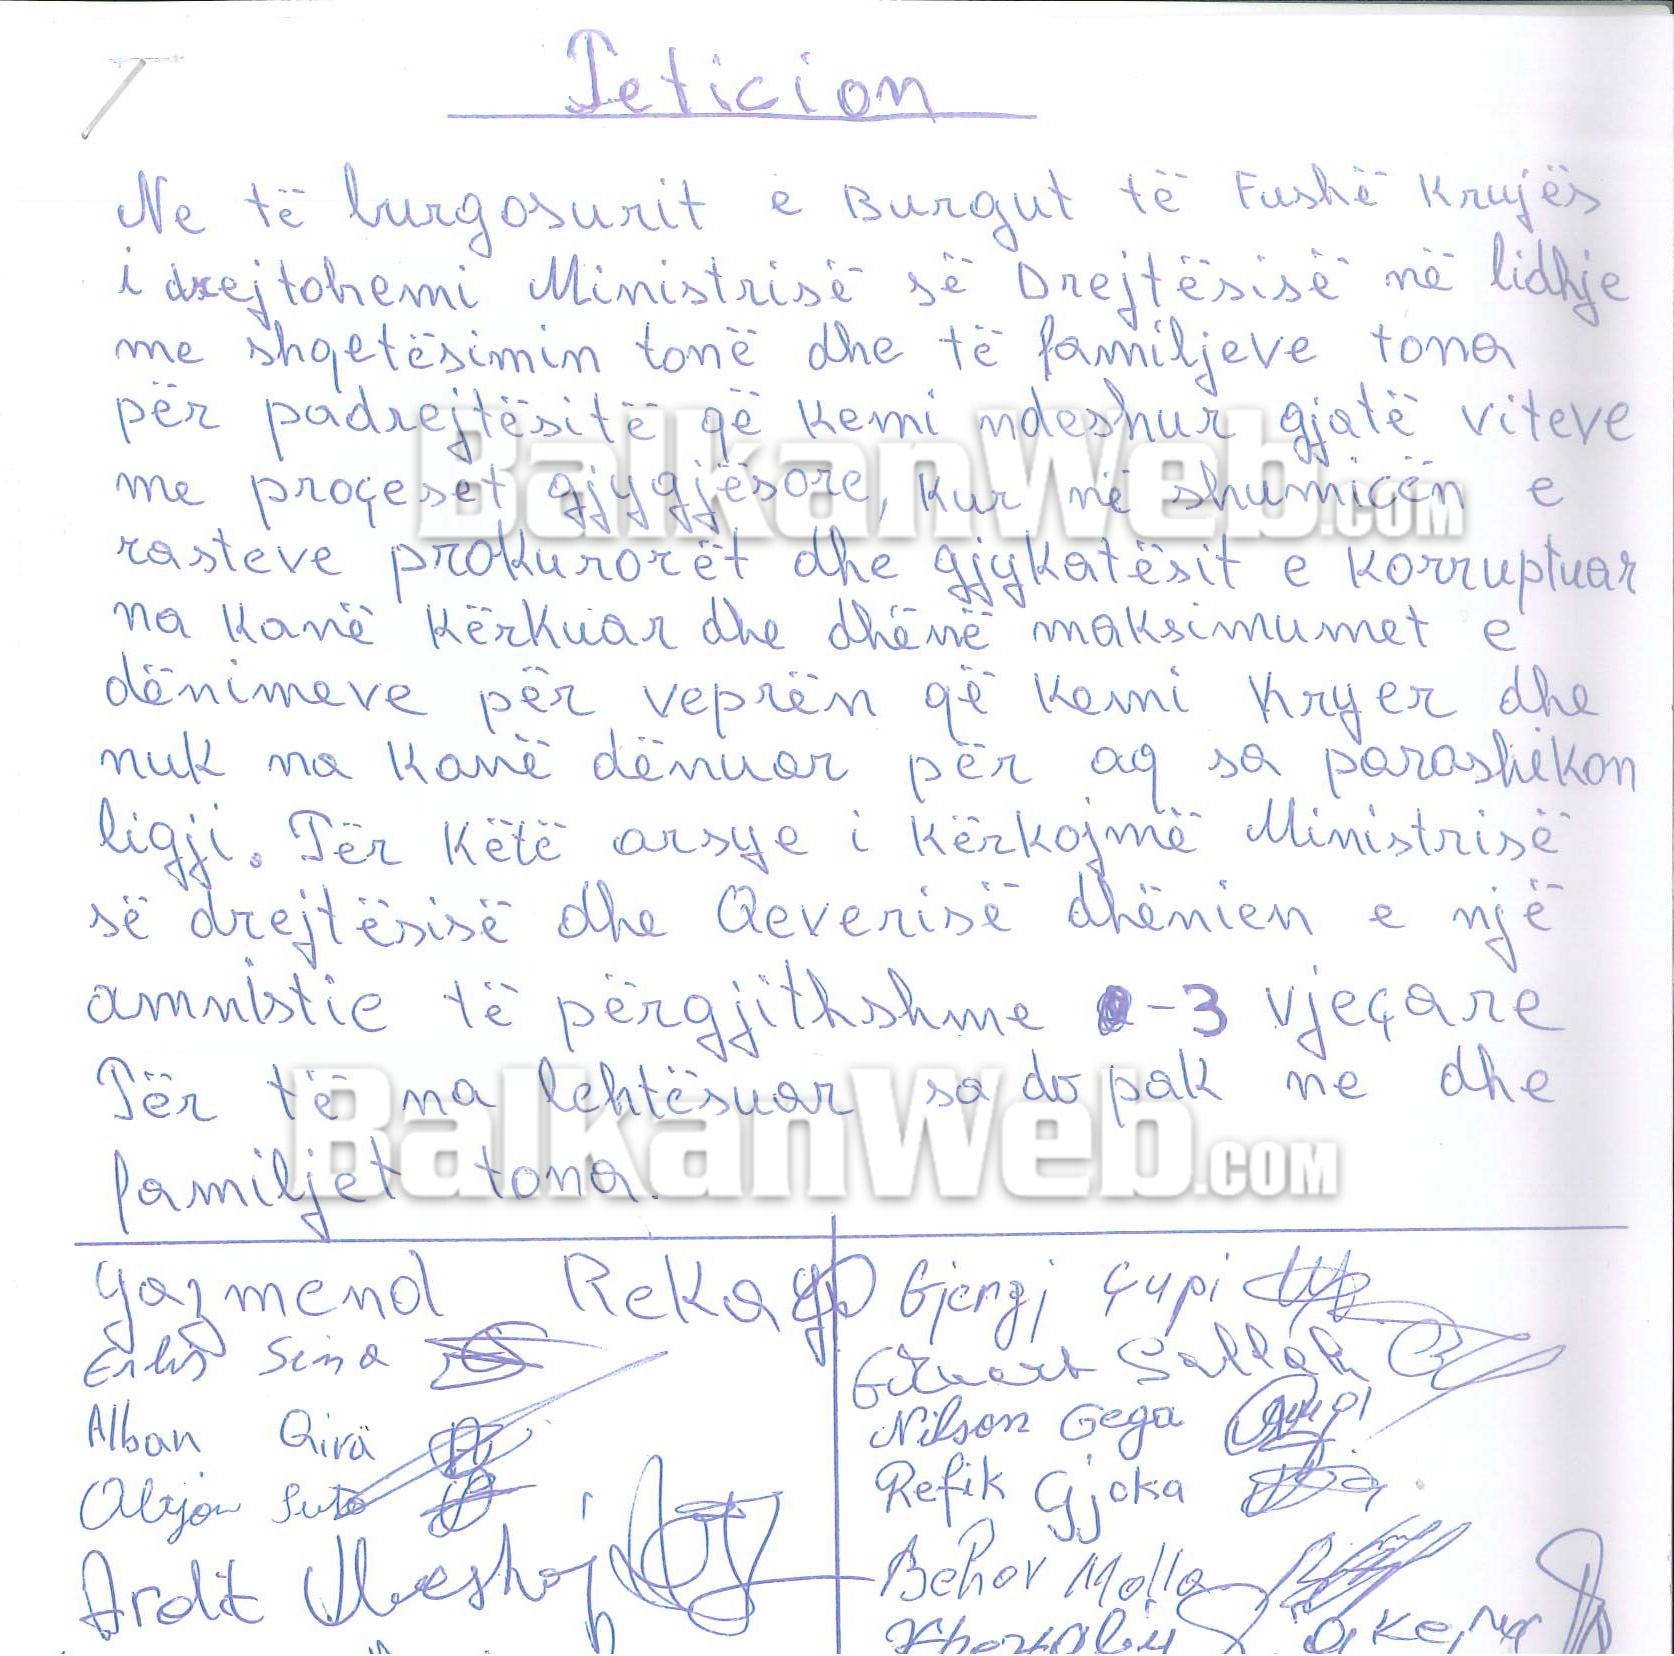 Peticion
Ne të burgosurit e Burgut të Fushë Krujës
i drejtohemi Ministrisë së Drejtësisë në lidhje
me shqetësimin tonë dhe të familjeve tona
për padrejtësitë që kemi ndeshur gjatë viteve
me proçeset gjygjësore, kur në shumicën e
rasteve prokurorët dhe gjykatësit e korruptuar
na kanë kërkuar dhe dhënë maksimumet e
dënimeve për veprën që kemi kryer dhe
nuk na kanë dënuar për aq sa parashikon
ligji. Për këtë arsye i kërkojmë Ministrisë
së drejtësisë dhe Qeverisë dhënien e një
amnistie të përgjithshme -3 vjeçare
Për të na lehtësuar sado pak ne dhe
familjet tona.
BalkanWeb.com
BalkanWeb.com
Gazmend Reka
Sina
Alban
Ardit
Gjergj Çupi
Nilson Gega
Refik Gjoka
Behar Molla